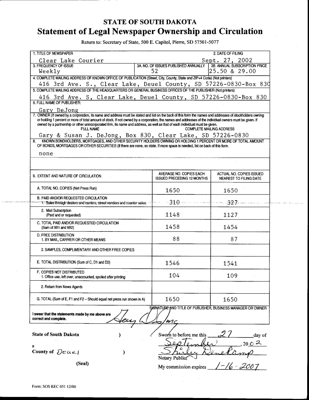 STATE OF SOUTH DAKOTA
Statement of Legal Newspaper Ownership and Circulation
Return to: Secretary of State, 500 E. Capitol, Pierre, SD 57501-5077
1. TITLE OF NEWSPAPER 2. DATE OF FILING
Clear Lake Courier Sept. 27, 2002
3. FREQUENCY OF ISSUE 3A. NO. OF ISSUES PUBLISHED ANNUALLY 3B. ANNUAL SUBSCRIPTION PRICE
Weekly 52 $25.50 & 29.00
4. COMPLETE MAILING ADDRESS OF KNOWN OFFICE OF PUBLICATION (Street, City, County, State and ZIP+4 Code) (Not printers)
416 3rd Ave. S, Clear Lake, Deuel County, SD 57226-0830-Box 830
5. COMPLETE MAILING ADDRESS OF THE HEADQUARTERS OR GENERAL BUSINESS OFFICES OF THE PUBLISHER (Not printers)
416 3rd Ave. S, Clear Lake, Deuel County, SD 57226-0830-Box 830
6. FULL NAME OF PUBLISHER
Gary DeJong
7. OWNER (If owned by a corporation, its name and address must be stated and also on the back of this form the names and addresses of stockholders owning
or holding 1 percent or more of total amount of stock. If not owned by a corporation, the names and addresses of the individual owners must be given. If
owned by a partnership or other unincorporated firm, its name and address, as well as that of each individual must be given.
FULL NAME COMPLETE MAILING ADDRESS
Gary & Susan J. DeJong, Box 830, Clear Lake, SD 57226-0830
8. KNOWN BONDHOLDERS, MORTGAGEES, AND OTHER SECURITY HOLDERS OWNING OR HOLDING 1 PERCENT OR MORE OF TOTAL AMOUNT
OF BONDS, MORTGAGES OR OTHER SECURITIES (If there are none, so state. If more space is needed, list on back of this form.
none
9. EXTENT AND NATURE OF CIRCULATION AVERAGE NO. COPIES EACH ISSUED PRECEDING 12 MONTHS ACTUAL NO. COPIES ISSUED NEAREST TO FILING DATE
A. TOTAL NO. COPIES (Net Press Run) 1650 1650
B. PAID AND/OR REQUESTED CIRCULATION
1. Sales through dealers and carriers, street vendors and counter sales 310 327
2. Mail Subscription
(Paid and or requested) 1148 1127
C. TOTAL PAID AND/OR REQUESTED CIRCULATION
(Sum of 9B1 and 9B2) 1458 1454
D. FREE DISTRIBUTION
1. BY MAIL, CARRIER OR OTHER MEANS 88 87
2. SAMPLES, COMPLIMENTARY AND OTHER FREE COPIES
E. TOTAL DISTRIBUTION (Sum of C, D1 and D2) 1546 1541
F. COPIES NOT DISTRIBUTED
1. Office use, left over, unaccounted, spoiled after printing 104 109
2. Return from News Agents
G. TOTAL (Sum of E, F1 and F2 - Should equal net press run shown in A) 1650 1650
SIGNATURE AND TITLE OF PUBLISHER, BUSINESS MANAGER OR OWNER
I swear that the statements made by me above are
correct and complete. Gary DeJong
State of South Dakota ) Sworn to before me this 27 day of
September 2002
County of Deuel )
(Seal) Notary Public
My commission expires 1-16-2007
Form: SOS REC 051 12/00